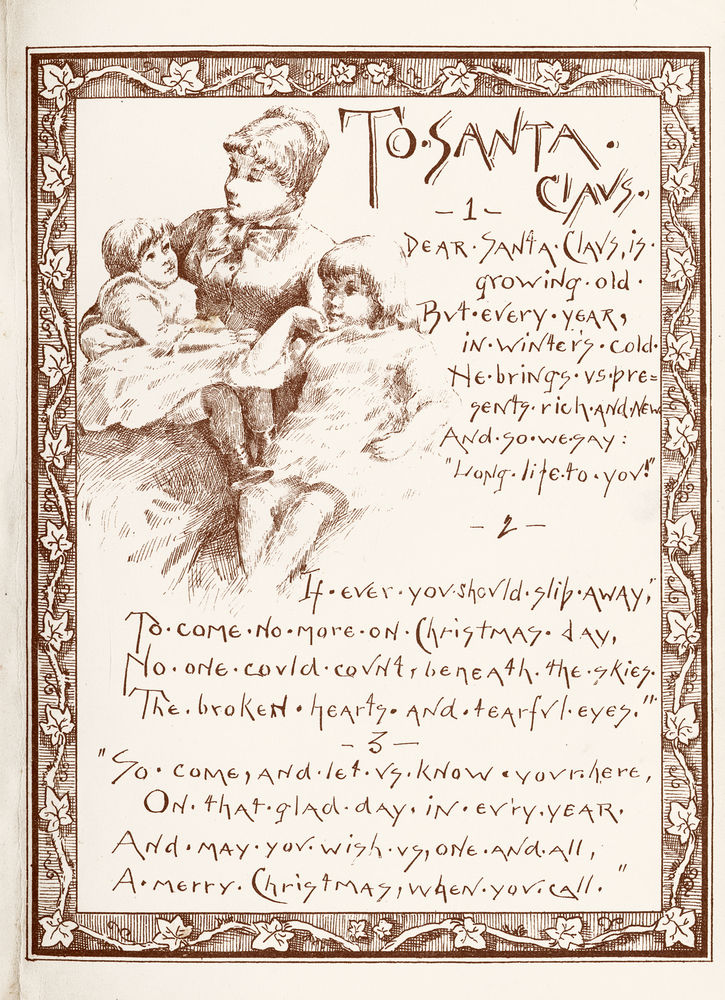 TO·SANTA·
ClAVS·
-1-
DEAR·SANTA·ClAVS, is·
growing·old·
BVt·every·yEAR,
in·winter's·cold·
He·brings·vs·pre=
sents·rich·AND·New
And·so·we·say:
"Long·life·to·yov!"
-2-
If·ever·yov·shovld·slip·AwAy,"
To·come·No·more·on·ChristmAs·dAy,
No·one·covld·covNt, beneAth·the·skies·
The·broken·heArts·And·teArfvl·eyes."
-3-
"So·come, And·let·vs·know·yovr·here,
ON·thAt·glAd·dAy·in·ev'ry·yEAR·
And·mAy·yov·wish·vs, one·And·All,
A·merry·ChristmAs, when·yov·cAll."